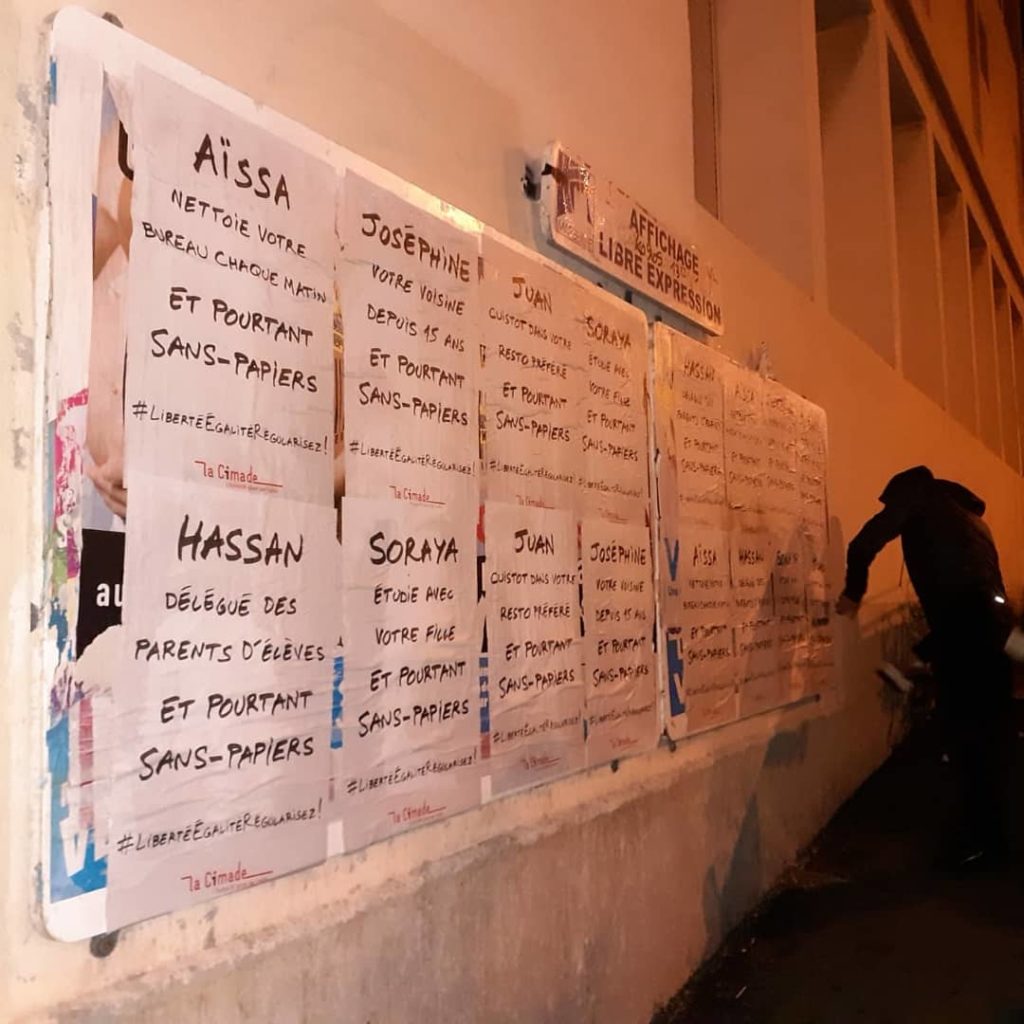 AÏSSA
NETTOIE VOTRE
BUREAU CHAQUE MATIN
ET POURTANT
SANS-PAPIERS
#LIBERTÉÉGALITÉRÉGULARISEZ!
la Cimade
JOSÉPHINE
VOTRE VOISINE
DEPUIS 15 ANS
ET POURTANT
SANS-PAPIERS
#LIBERTÉÉGALITÉRÉGULARISEZ!
la Cimade
JUAN
CUISTOT DANS VOTRE
RESTO PRÉFÉRÉ
ET POURTANT
SANS-PAPIERS
#LIBERTÉÉGALITÉRÉGULARISEZ!
la Cimade
SORAYA
ÉTUDIE AVEC
VOTRE FILLE
ET POURTANT
SANS-PAPIERS
#LIBERTÉÉGALITÉRÉGULARISEZ!
AFFICHAGE
LIBRE EXPRESSION
HASSAN
DÉLÉGUÉ DES
PARENTS D'ÉLÈVES
ET POURTANT
SANS-PAPIERS
AÏSSA
HASSAN
DÉLÉGUÉ DES
PARENTS D'ÉLÈVES
ET POURTANT
SANS-PAPIERS
#LIBERTÉÉGALITÉRÉGULARISEZ!
la Cimade
SORAYA
ÉTUDIE AVEC
VOTRE FILLE
ET POURTANT
SANS-PAPIERS
#LIBERTÉÉGALITÉRÉGULARISEZ!
la Cimade
JUAN
CUISTOT DANS VOTRE
RESTO PRÉFÉRÉ
ET POURTANT
SANS-PAPIERS
#LIBERTÉÉGALITÉRÉGULARISEZ!
la Cimade
JOSÉPHINE
VOTRE VOISINE
DEPUIS 15 ANS
ET POURTANT
SANS-PAPIERS
#LIBERTÉÉGALITÉRÉGULARISEZ!
la Cimade
AÏSSA
NETTOIE VOTRE
BUREAU CHAQUE MATIN
ET POURTANT
SANS-PAPIERS
HASSAN
SORAYA
au